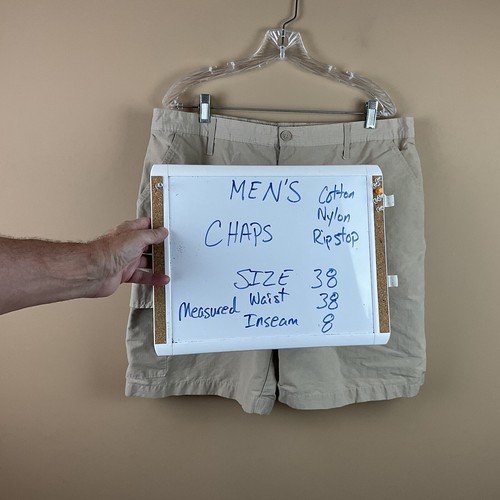 MEN'S Cotton
Nylon
CHAPS Ripstop
SIZE 38
Measured Waist 38
Inseam 8